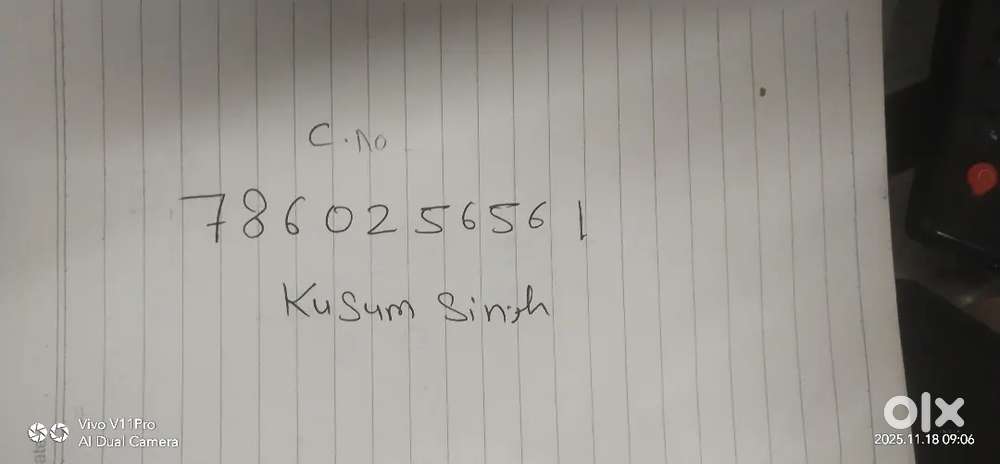 C.No
7860256561
Kusum Singh
Vivo V11Pro
AI Dual Camera
olx
2025.11.18 09:06